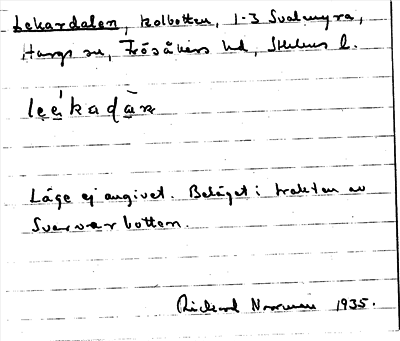 Lekardalen, kolbotten, 1-3 Svalmyra,
Hargs sn, Frösåkers hd, Sthlms l.
leékadàn
Läge ej angivet. Beläget i trakten av
Svarvarbotten.
Rickard Norrman 1935.